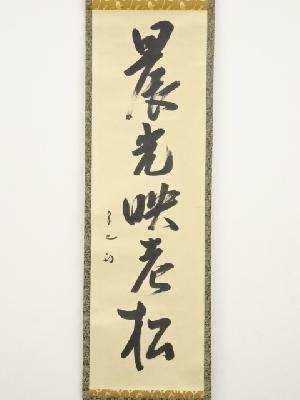 晨光映老松